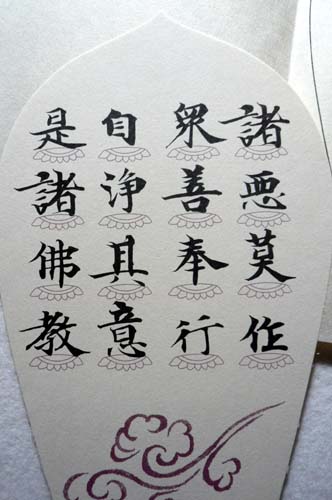 諸悪莫作
衆善奉行
自浄具意
是諸佛教